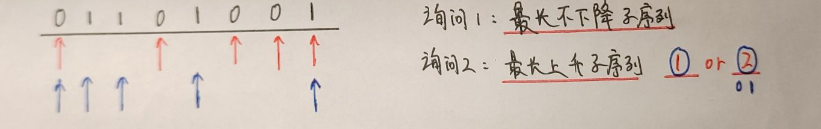 0 1 1 0 1 0 0 1
询问1：最长不下降子序列
询问2：最长上升子序列 ① or ②
01